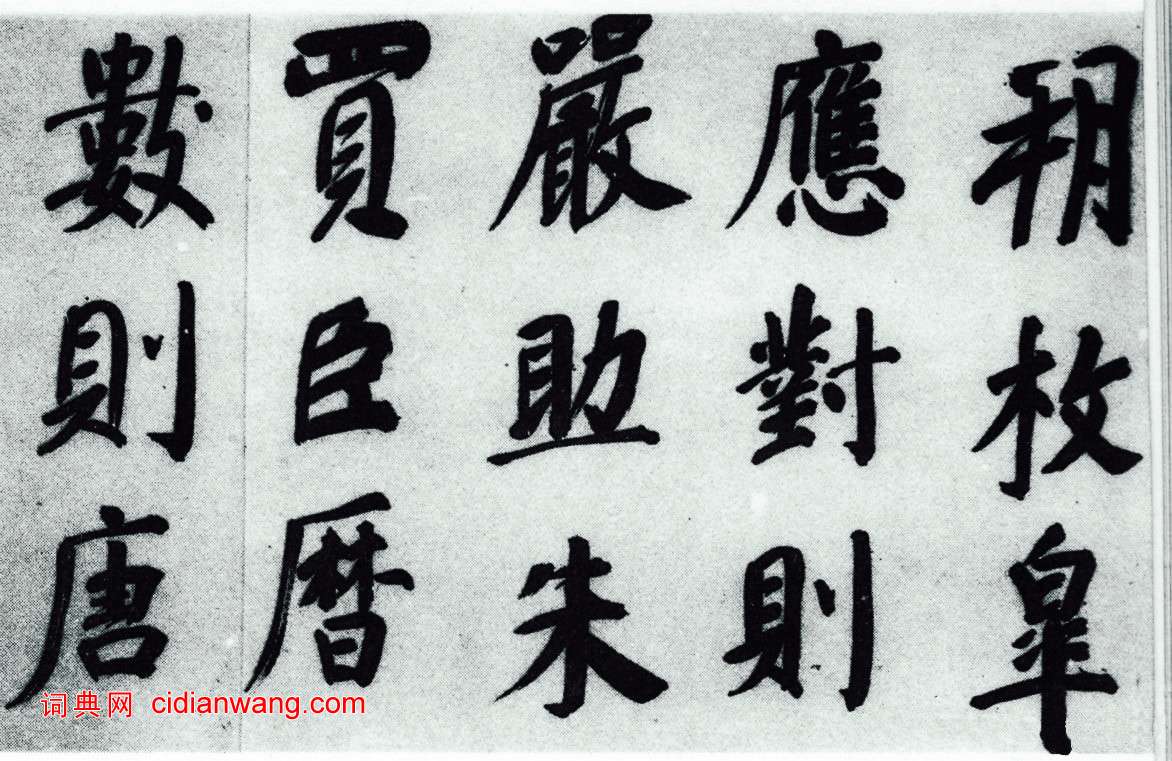 朔枚皐
應對則
嚴助朱
買臣曆
數則唐
词典网 cidianwang.com